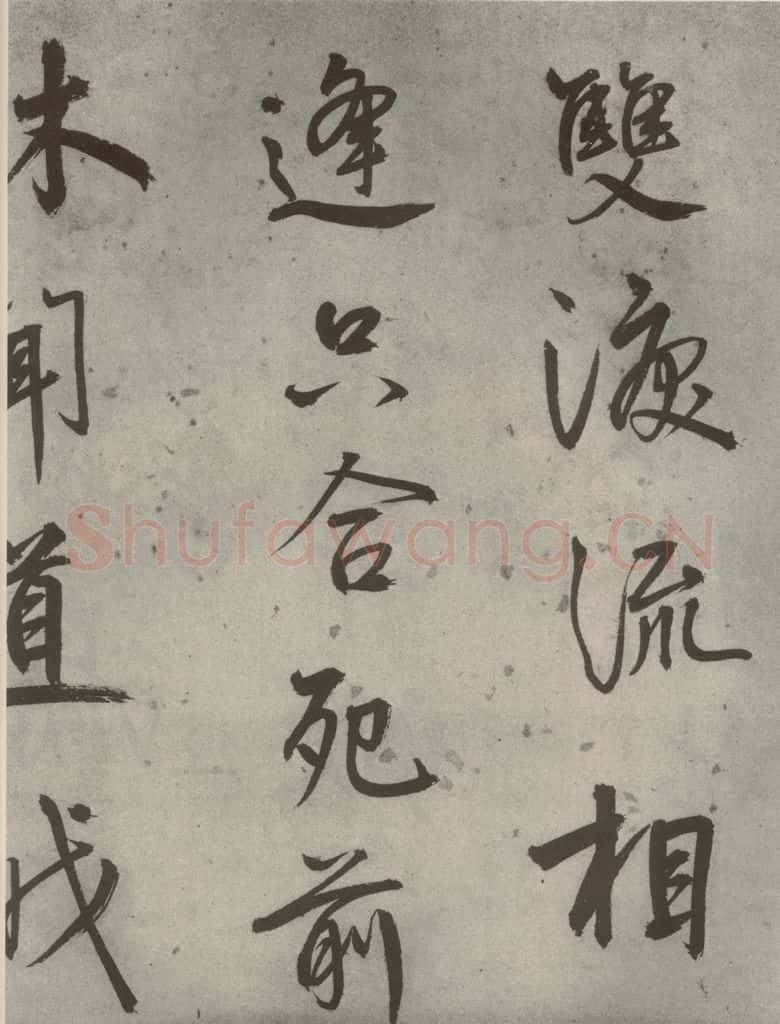 雙淚流相
逢只合死前
休聞道
Shufawang.CN